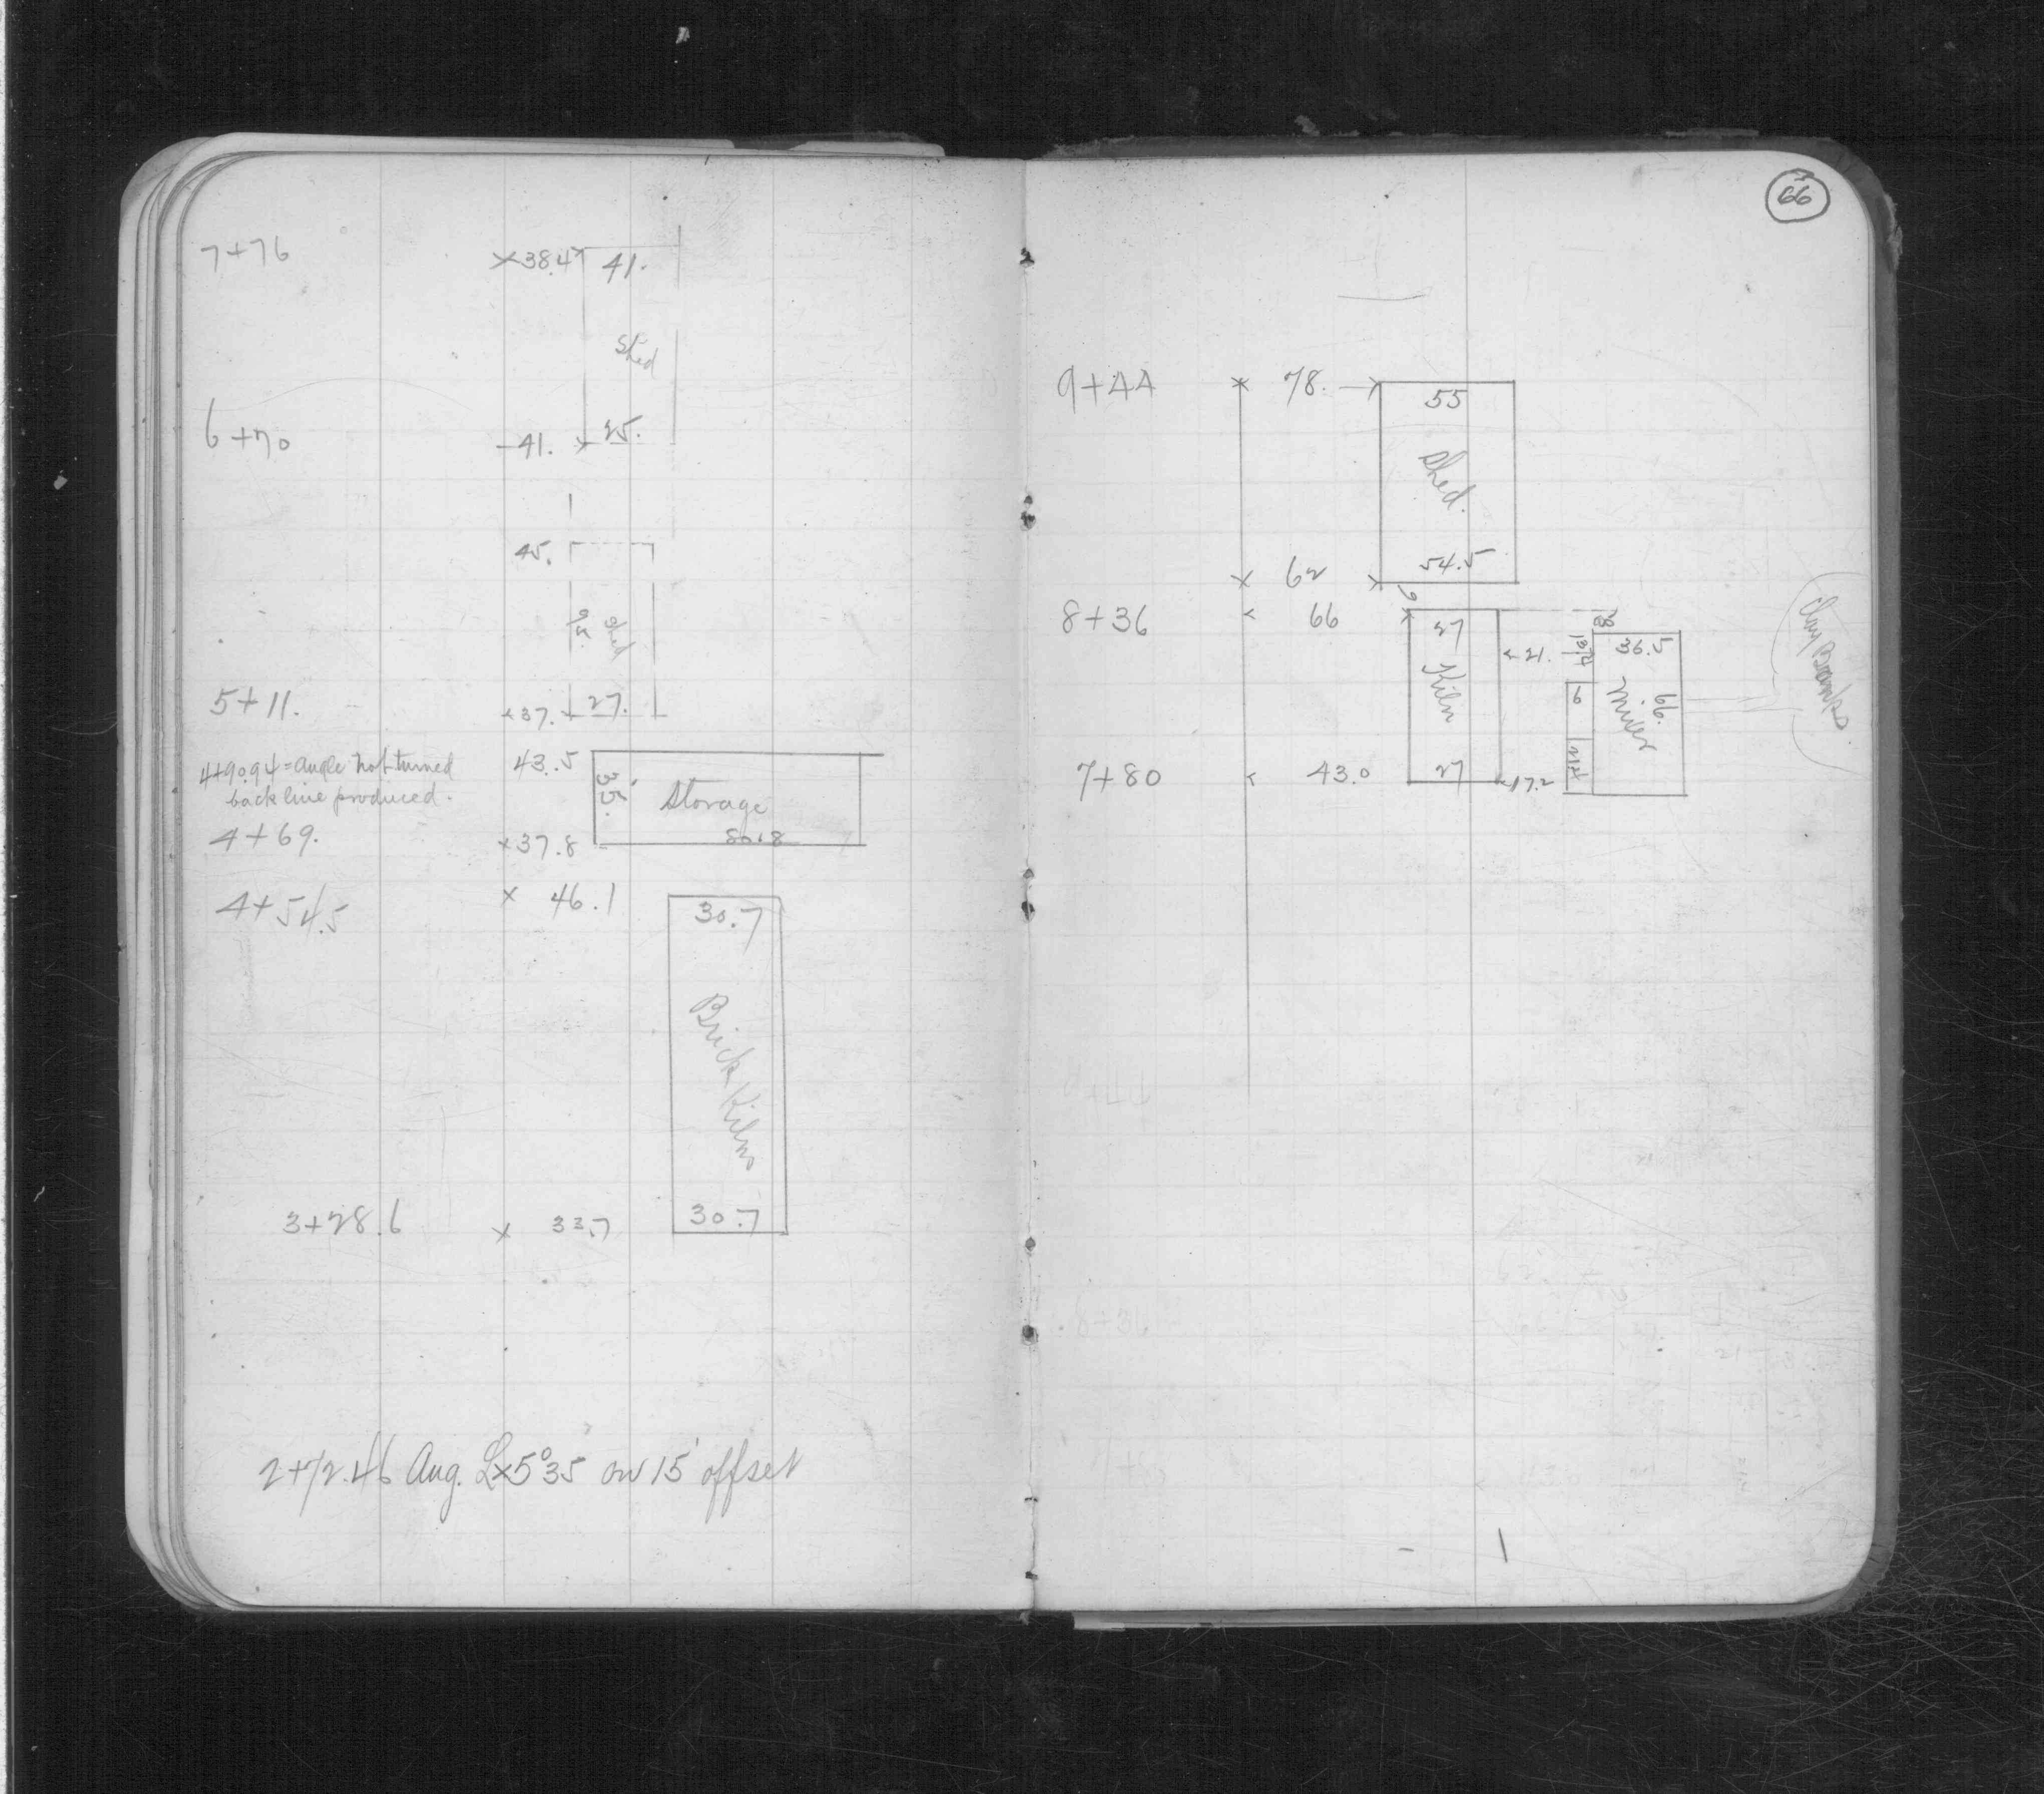 7+76 ×38.4 41.
Shed
6+70 -41. 25.
45.
95.
Shed
5+11. ×37. 27.
4+90.94 = Angle not turned
back line produced.
43.5 35.
Storage
80.8
4+69. ×37.8
4+54.5 × 46.1 30.7
Brick Kilns
3+28.6 × 33.7 30.7
2+72.46 Ang. L×5°35 on 15' offset
66
9+44 × 78. 55
Shed.
× 62 54.5
9
8+36 66 27 8
Kiln
21. 36.5
9
66.
Clay Banks.
7+80 43.0 27 17.2